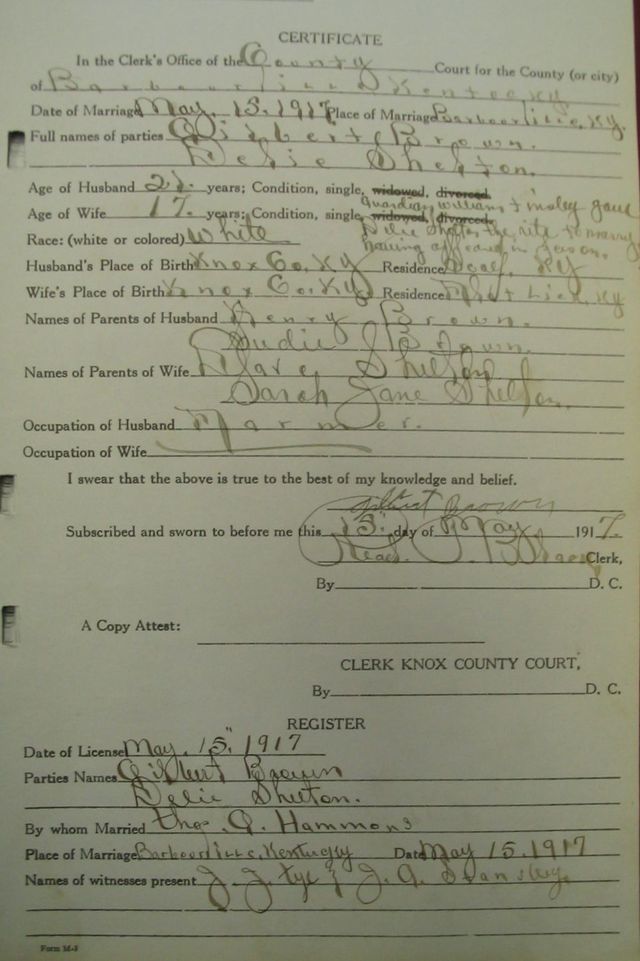 CERTIFICATE
In the Clerk's Office of the County Court for the County (or city)
of Barbourville Kentucky
Date of Marriage May. 15. 1917 Place of Marriage Barbourville, Ky.
Full names of parties Gilbert Brown.
Delie Shelton.
Age of Husband 21. years; Condition, single, widowed, divorced.
Guardian William &
Age of Wife 17. years; Condition, single, widowed, divorced.
Delie Shelton the rite to marry
Race: (white or colored) White
having appeared in person.
Husband's Place of Birth Knox Co. Ky Residence Ky
Wife's Place of Birth Knox Co. Ky Residence Flat Lick, Ky
Names of Parents of Husband Henry Brown.
Sudie Brown.
Names of Parents of Wife Shelton
Sarah Jane Shelton.
Occupation of Husband Farmer.
Occupation of Wife
I swear that the above is true to the best of my knowledge and belief.
Gilbert Brown
Subscribed and sworn to before me this 15" day of May 1917.
Read Clerk,
By D. C.
A Copy Attest:
CLERK KNOX COUNTY COURT,
By D. C.
REGISTER
Date of License May. 15," 1917
Parties Names Gilbert Brown
Delie Shelton.
By whom Married Thos. G. Hammons
Place of Marriage Barbourville, Kentucky Date May 15. 1917
Names of witnesses present J. J. Tye & J. G.
Form M-3